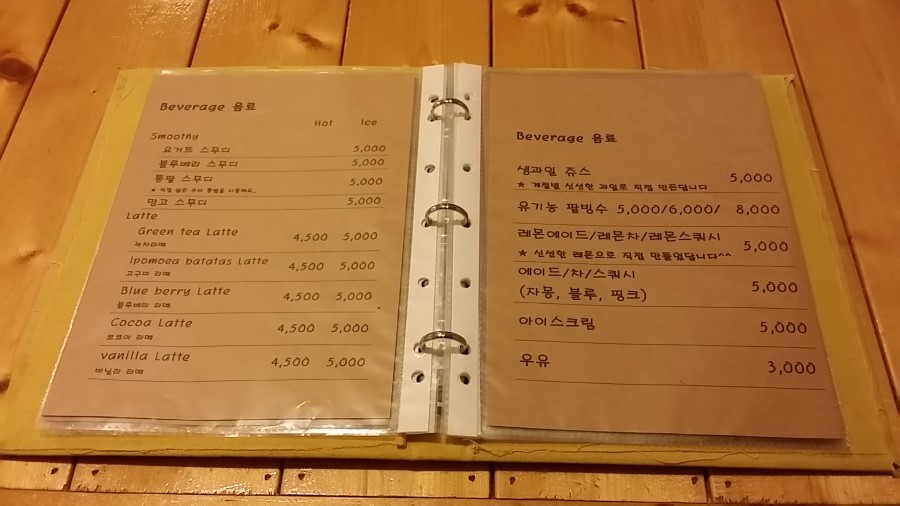 Beverage 음료
Hot Ice
Smoothy
요거트 스무디 5,000
블루베리 스무디 5,000
통팥 스무디 5,000
★ 직접 삶은 우리 통팥을 사용해요.
망고 스무디 5,000
Latte
Green tea Latte 4,500 5,000
녹차라떼
Ipomoea batatas Latte 4,500 5,000
고구마 라떼
Blue berry Latte 4,500 5,000
블루베리 라떼
Cocoa Latte 4,500 5,000
코코아 라떼
vanilla Latte 4,500 5,000
바닐라 라떼
Beverage 음료
생과일 쥬스 5,000
★ 계절별 신선한 과일로 직접 만든답니다
유기농 팥빙수 5,000/6,000/ 8,000
레몬에이드/레몬차/레몬스쿼시 5,000
★ 신선한 레몬으로 직접 만들었답니다^^
에이드/차/스쿼시
(자몽, 블루, 핑크) 5,000
아이스크림 5,000
우유 3,000